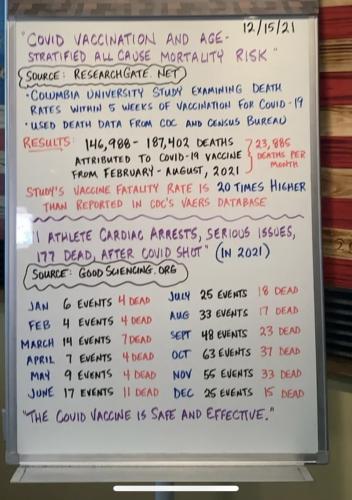 12/15/21
"COVID VACCINATION AND AGE-
STRATIFIED ALL CAUSE MORTALITY RISK"
SOURCE: RESEARCHGATE.NET
• COLUMBIA UNIVERSITY STUDY EXAMINING DEATH
RATES WITHIN 5 WEEKS OF VACCINATION FOR COVID-19
• USED DEATH DATA FROM CDC AND CENSUS BUREAU
RESULTS: 146,988 - 187,402 DEATHS
ATTRIBUTED TO COVID-19 VACCINE
FROM FEBRUARY - AUGUST, 2021
23,885
DEATHS PER
MONTH
STUDY'S VACCINE FATALITY RATE IS 20 TIMES HIGHER
THAN REPORTED IN CDC'S VAERS DATABASE
1 ATHLETE CARDIAC ARRESTS, SERIOUS ISSUES,
177 DEAD, AFTER COVID SHOT" (IN 2021)
SOURCE: GOODSCIENCING.ORG
JAN 6 EVENTS 4 DEAD
FEB 4 EVENTS 4 DEAD
MARCH 14 EVENTS 7 DEAD
APRIL 7 EVENTS 4 DEAD
MAY 9 EVENTS 4 DEAD
JUNE 17 EVENTS 11 DEAD
JULY 25 EVENTS 18 DEAD
AUG 33 EVENTS 17 DEAD
SEPT 48 EVENTS 23 DEAD
OCT 63 EVENTS 37 DEAD
NOV 55 EVENTS 33 DEAD
DEC 25 EVENTS 15 DEAD
"THE COVID VACCINE IS SAFE AND EFFECTIVE."